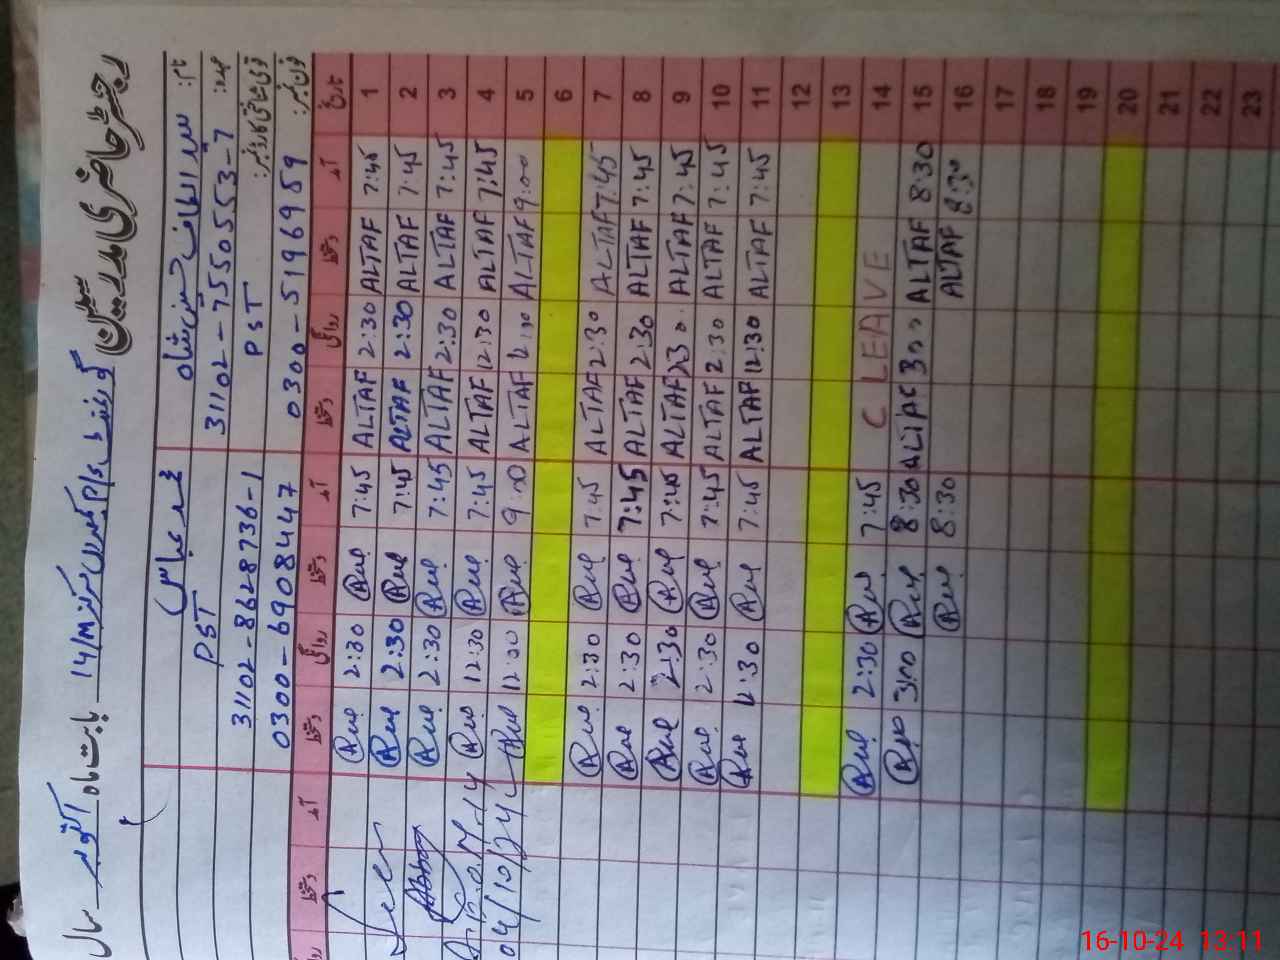 رجسٹر حاضری مدرسین گورنمنٹ بابت ماہ اکتوبر سال
نام: سید الطاف حسین شاہ محمد عباس
عہدہ: PST
31102-7550553-7 PST
قومی شناختی کارڈ نمبر: PST 31102-8628736-1
فون نمبر: 0300-5196959 0300-6908447
تاریخ آمد دستخط روانگی دستخط آمد دستخط روانگی دستخط آمد دستخط
1 7:45 ALTAF 2:30 ALTAF 7:45 2:30
2 7:45 ALTAF 2:30 ALTAF 7:45 2:30
3 7:45 ALTAF 2:30 ALTAF 7:45 2:30
4 7:45 ALTAF 12:30 ALTAF 7:45 12:30
5 9:00 ALTAF ALTAF 9:00 12:00
04/10/24
6
7 7:45 ALTAF 2:30 ALTAF 7:45 2:30
8 7:45 ALTAF 2:30 ALTAF 7:45 2:30
9 7:45 ALTAF 2:30 ALTAF 7:45 2:30
10 7:45 ALTAF 2:30 ALTAF 7:45 2:30
11 7:45 ALTAF 12:30 ALTAF 7:45 12:30
12
13
14 C LEAVE 7:45 2:30
15 8:30 ALTAF 3:00 ALTAF 8:30 3:00
16 8:30 ALTAF 8:30
17
18
19
20
21
22
23
16-10-24 13:11